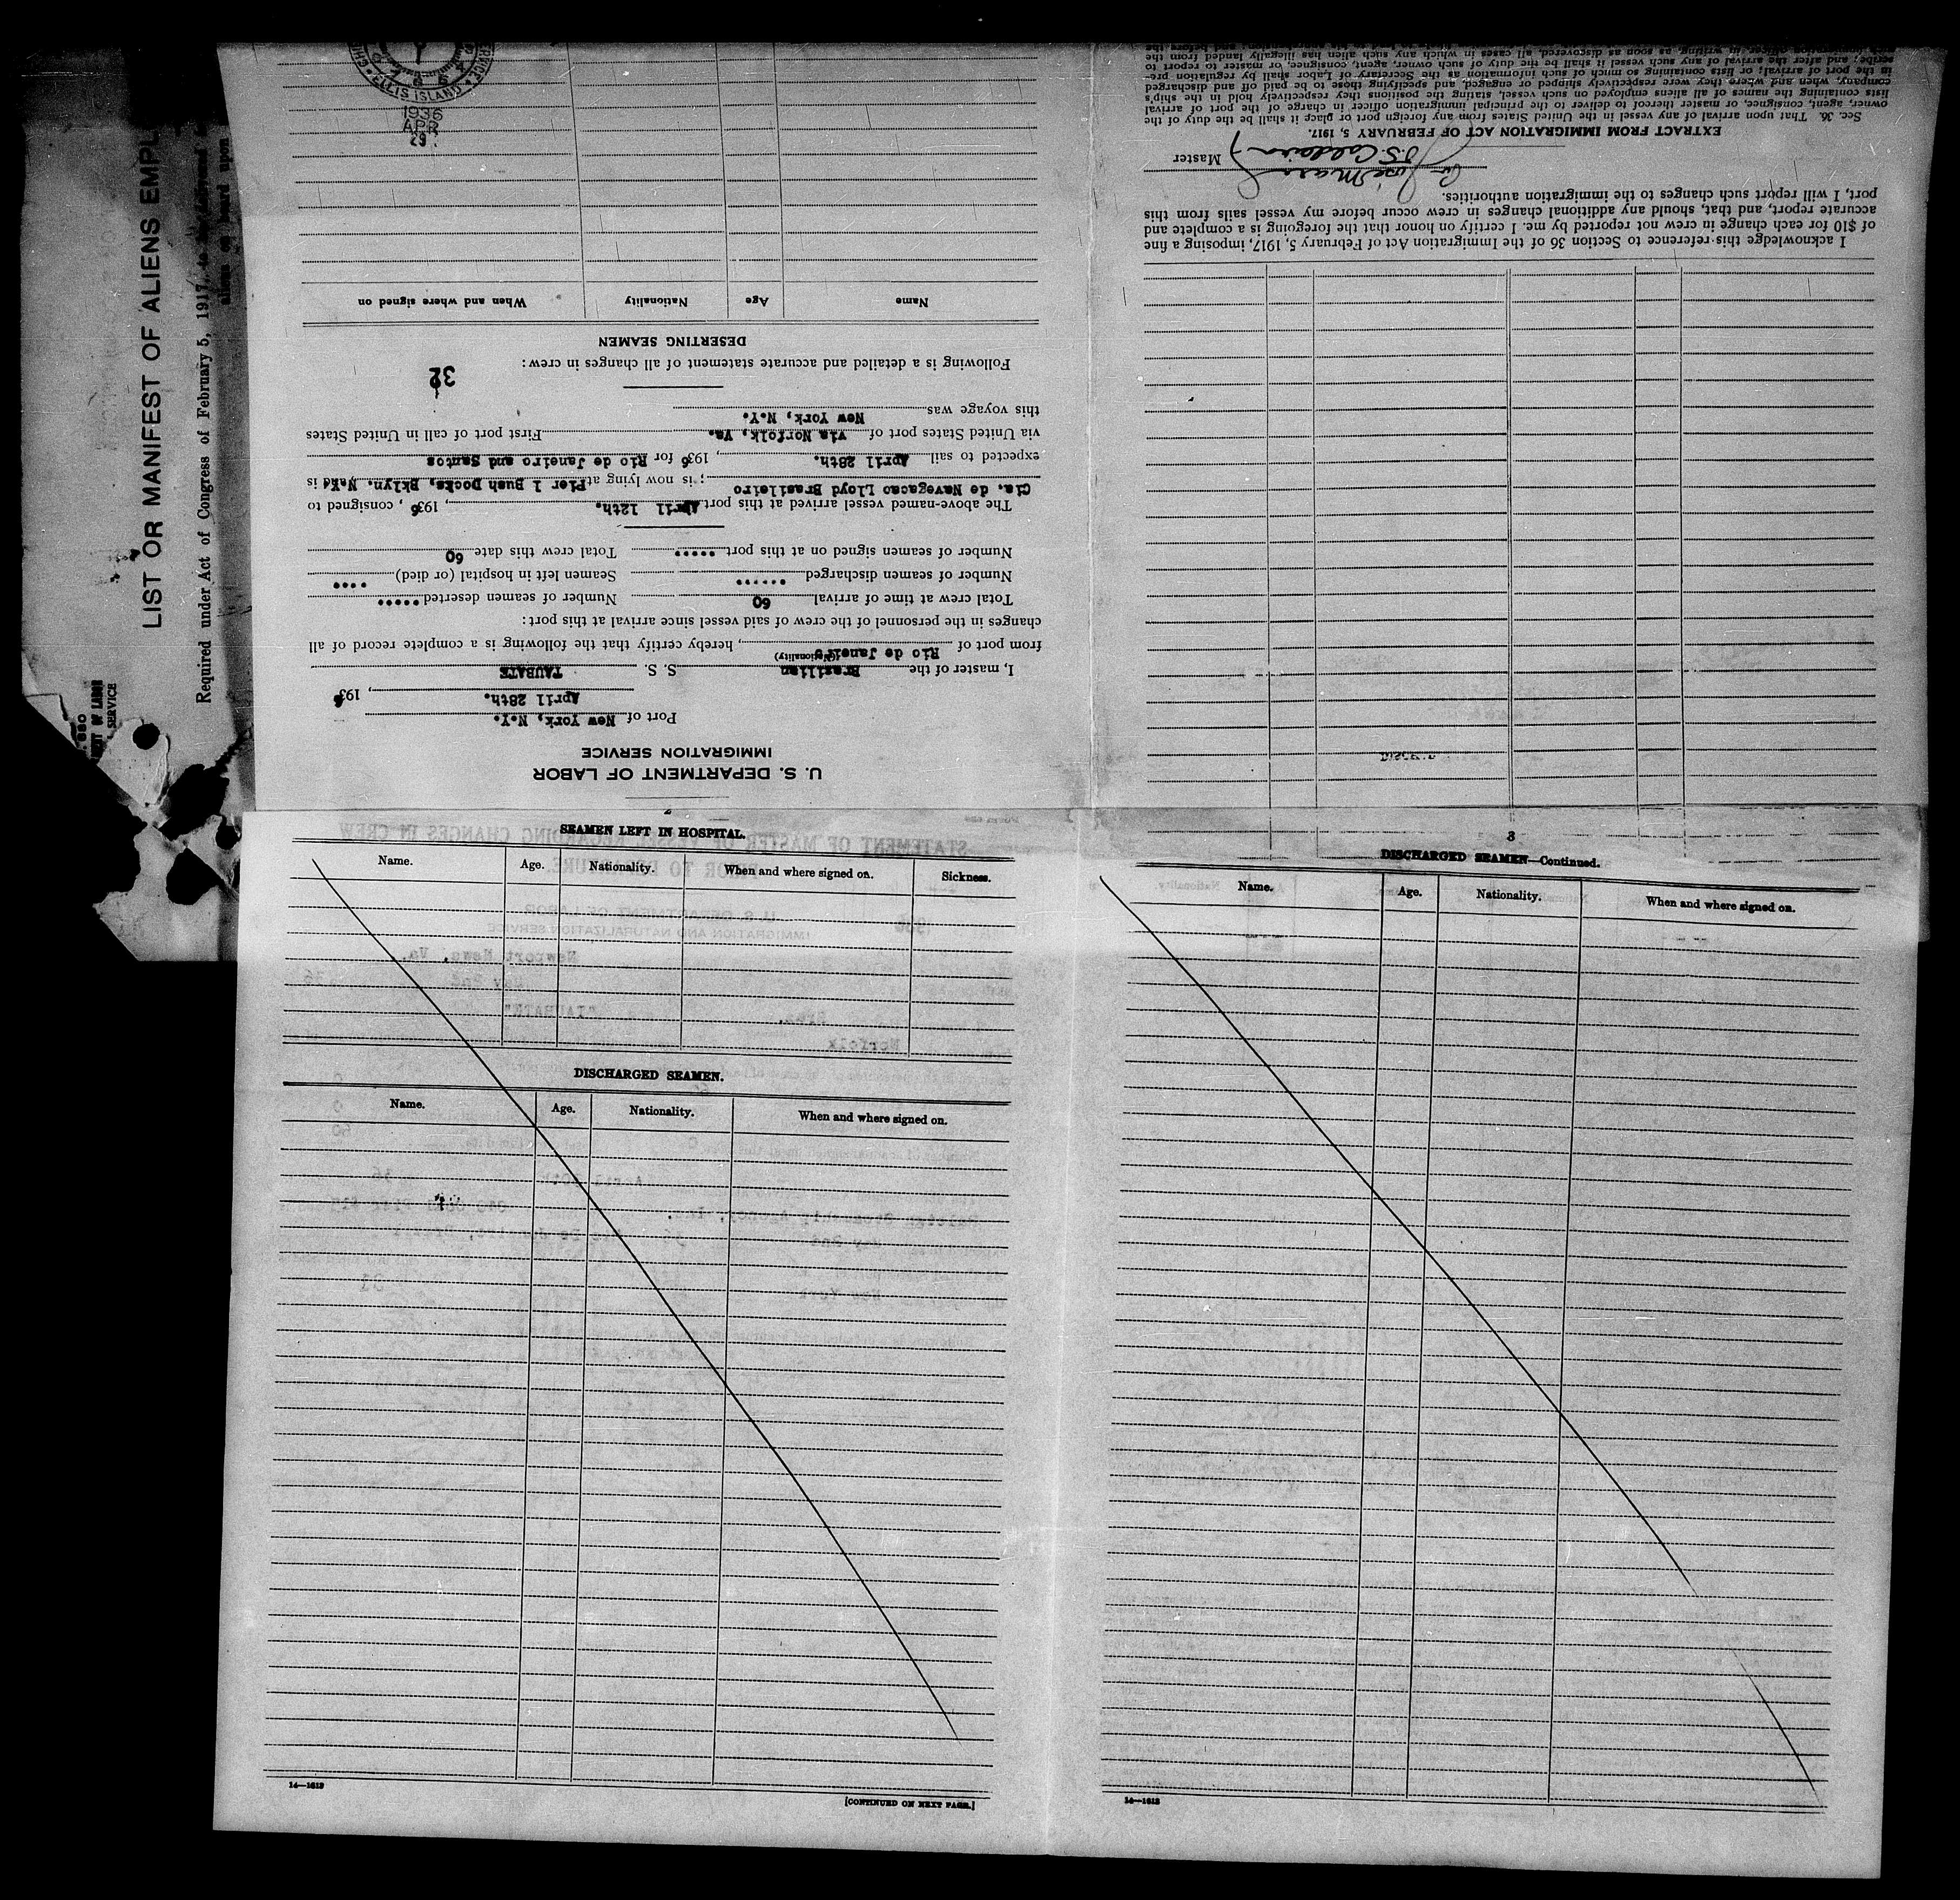 LIST OR MANIFEST OF ALIENS EMPL
Required under Act of Congress of February 5, 1917, to
SERVICE
U. S. DEPARTMENT OF LABOR
IMMIGRATION SERVICE
Port of New York, N.Y.
April 28th. , 1936
I, master of the Brazilian S. S. TAUBATE
(Nationality)
from port of Rio de Janeiro , hereby certify that the following is a complete record of all
changes in the personnel of the crew of said vessel since arrival at this port:
Total crew at time of arrival 60 Number of seamen deserted .....
Number of seamen discharged ...... Seamen left in hospital (or died) ....
Number of seamen signed on at this port ..... Total crew this date 60
The above-named vessel arrived at this port April 12th. , 1936 , consigned to
Cia. de Navegacao Lloyd Brasileiro ; is now lying at Pier 1 Bush Docks, Bklyn. N.Y. is
expected to sail April 28th. , 1936 for Rio de Janeiro and Santos
via United States port of via Norfolk, Va. First port of call in United States
this voyage was New York, N.Y.
32
Following is a detailed and accurate statement of all changes in crew:
DESERTING SEAMEN
Name Age Nationality When and where signed on
ELLIS ISLAND
1936
APR
29
I acknowledge this reference to Section 36 of the Immigration Act of February 5, 1917, imposing a fine
of $10 for each change in crew not reported by me. I certify on honor that the foregoing is a complete and
accurate report, and that, should any additional changes in crew occur before my vessel sails from this
port, I will report such changes to the immigration authorities.
Master
EXTRACT FROM IMMIGRATION ACT OF FEBRUARY 5, 1917.
Sec. 36. That upon arrival of any vessel in the United States from any foreign port or place it shall be the duty of the
owner, agent, consignee, or master thereof to deliver to the principal immigration officer in charge of the port of arrival
lists containing the names of all aliens employed on such vessel, stating the positions they respectively hold in the ship's
company, when and where they were respectively shipped or engaged, and specifying those to be paid off and discharged
in the port of arrival; or lists containing so much of such information as the Secretary of Labor shall by regulation pre-
scribe; and after the arrival of any such vessel it shall be the duty of such owner, agent, consignee, or master to report to
such immigration officer, in writing, as soon as discovered, all cases in which any such alien has illegally landed from the
2
SEAMEN LEFT IN HOSPITAL.
Name. Age. Nationality. When and where signed on. Sickness.
DISCHARGED SEAMEN.
Name. Age. Nationality. When and where signed on.
14—1613
[CONTINUED ON NEXT PAGE.]
3
DISCHARGED SEAMEN—Continued.
Name. Age. Nationality. When and where signed on.
14—1613